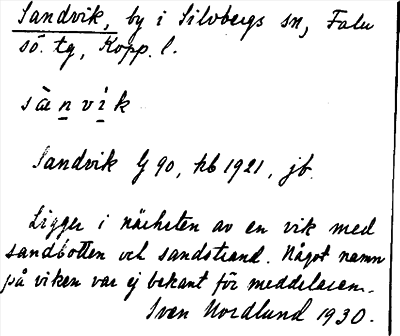 Sandvik, by i Silvbergs sn, Falu
sö. tg, Kopp. l.
sànvik
Sandvik G 90, hb 1921, jb.
Ligger i närheten av en vik med
sandbotten och sandstrand. Något namn
på viken var ej bekant för meddelaren.
Sven Nordlund 1930.